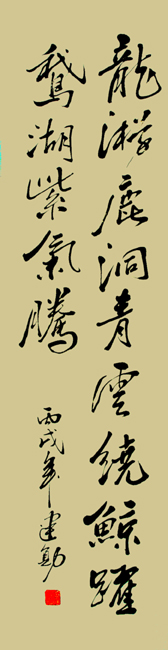 龍游鹿洞青雲繞鯨躍
鵝湖紫氣騰
丙戌年建勛